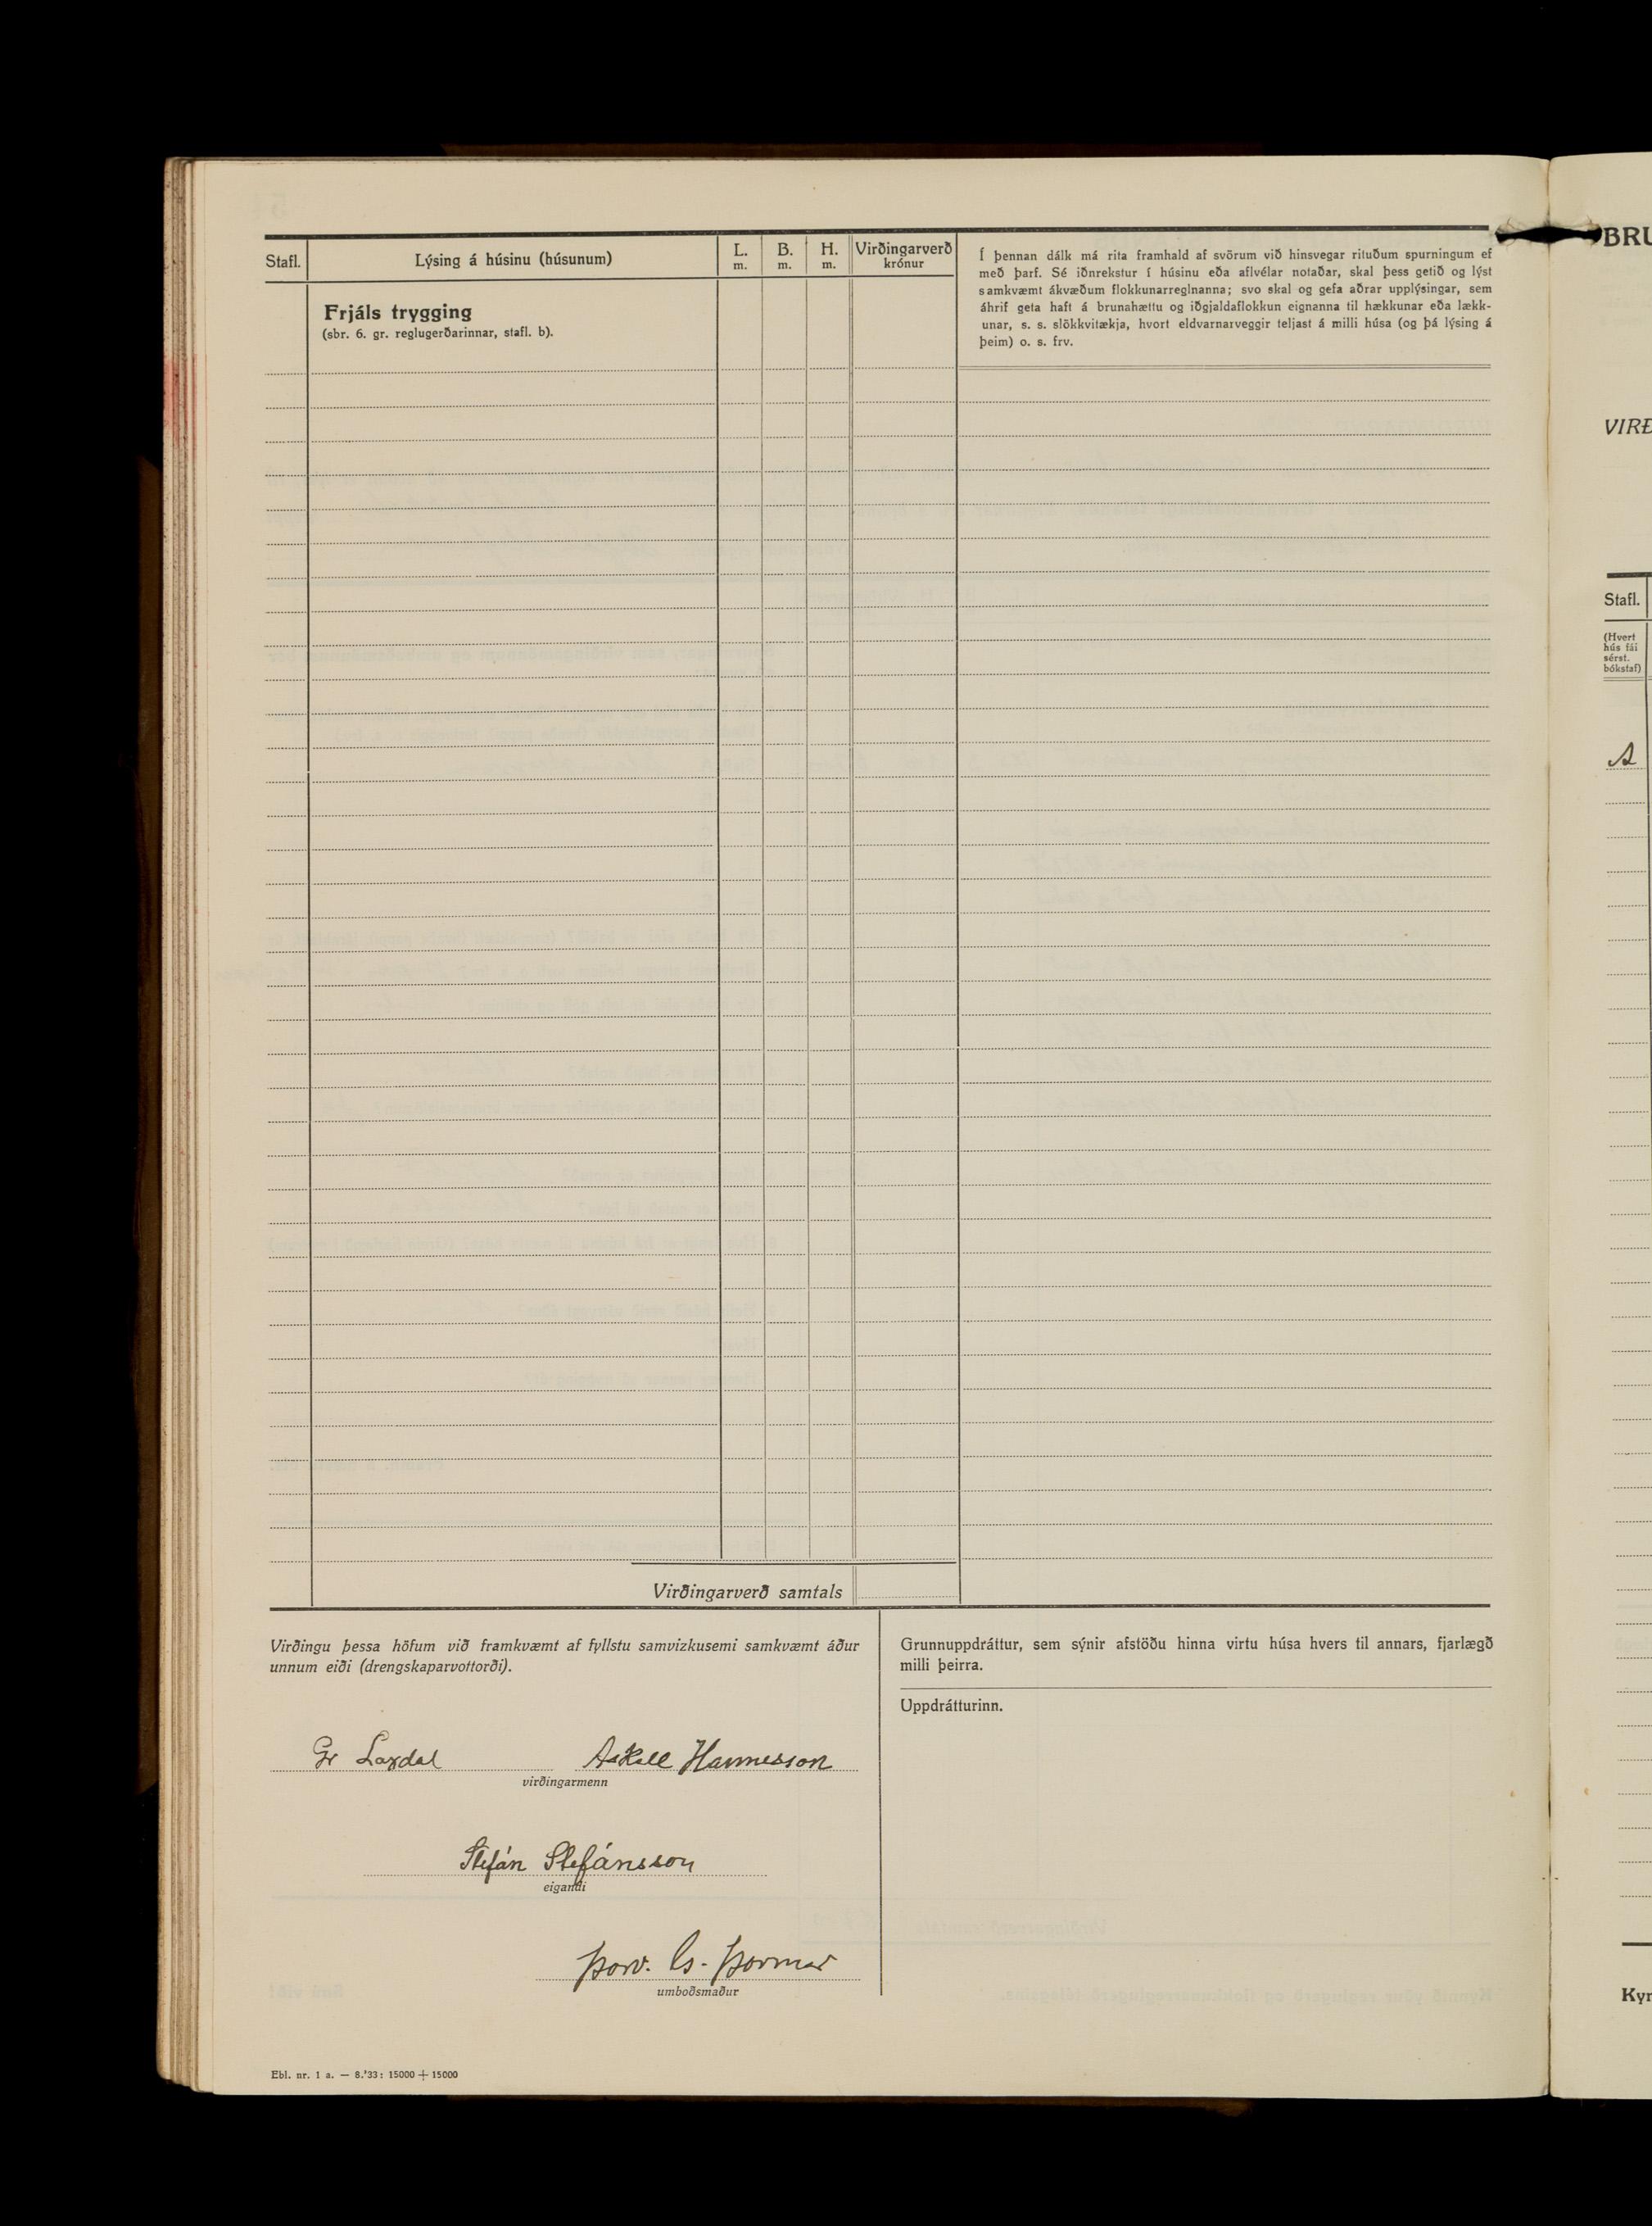 Stafl.
Lýsing á húsinu (húsunum)
L.
m.
B.
m.
H.
m.
Virðingarverð
krónur
Frjáls trygging
(sbr. 6. gr. reglugerðarinnar, stafl. b).
Í þennan dálk má rita framhald af svörum við hinsvegar rituðum spurningum ef
með þarf. Sé iðnrekstur í húsinu eða aflvélar notaðar, skal þess getið og lýst
samkvæmt ákvæðum flokkunarreglnanna; svo skal og gefa aðrar upplýsingar, sem
áhrif geta haft á brunahættu og iðgjaldaflokkun eignanna til hækkunar eða lækk-
unar, s. s. slökkvitækja, hvort eldvarnarveggir teljast á milli húsa (og þá lýsing á
þeim) o. s. frv.
Virðingarverð samtals
Virðingu þessa höfum við framkvæmt af fyllstu samvizkusemi samkvæmt áður
unnum eiði (drengskaparvottorði).
Gr Laxdal
Askell Hannesson
virðingarmenn
Stefán Stefánsson
eigandi
Þorv. G. Þormar
umboðsmaður
Grunnuppdráttur, sem sýnir afstöðu hinna virtu húsa hvers til annars, fjarlægð
milli þeirra.
Uppdrátturinn.
Ebl. nr. 1 a. — 8.'33: 15000 + 15000
BRU
VIRÐ
Stafl.
(Hvert
hús fái
sérst.
bókstaf)
A
Kyn